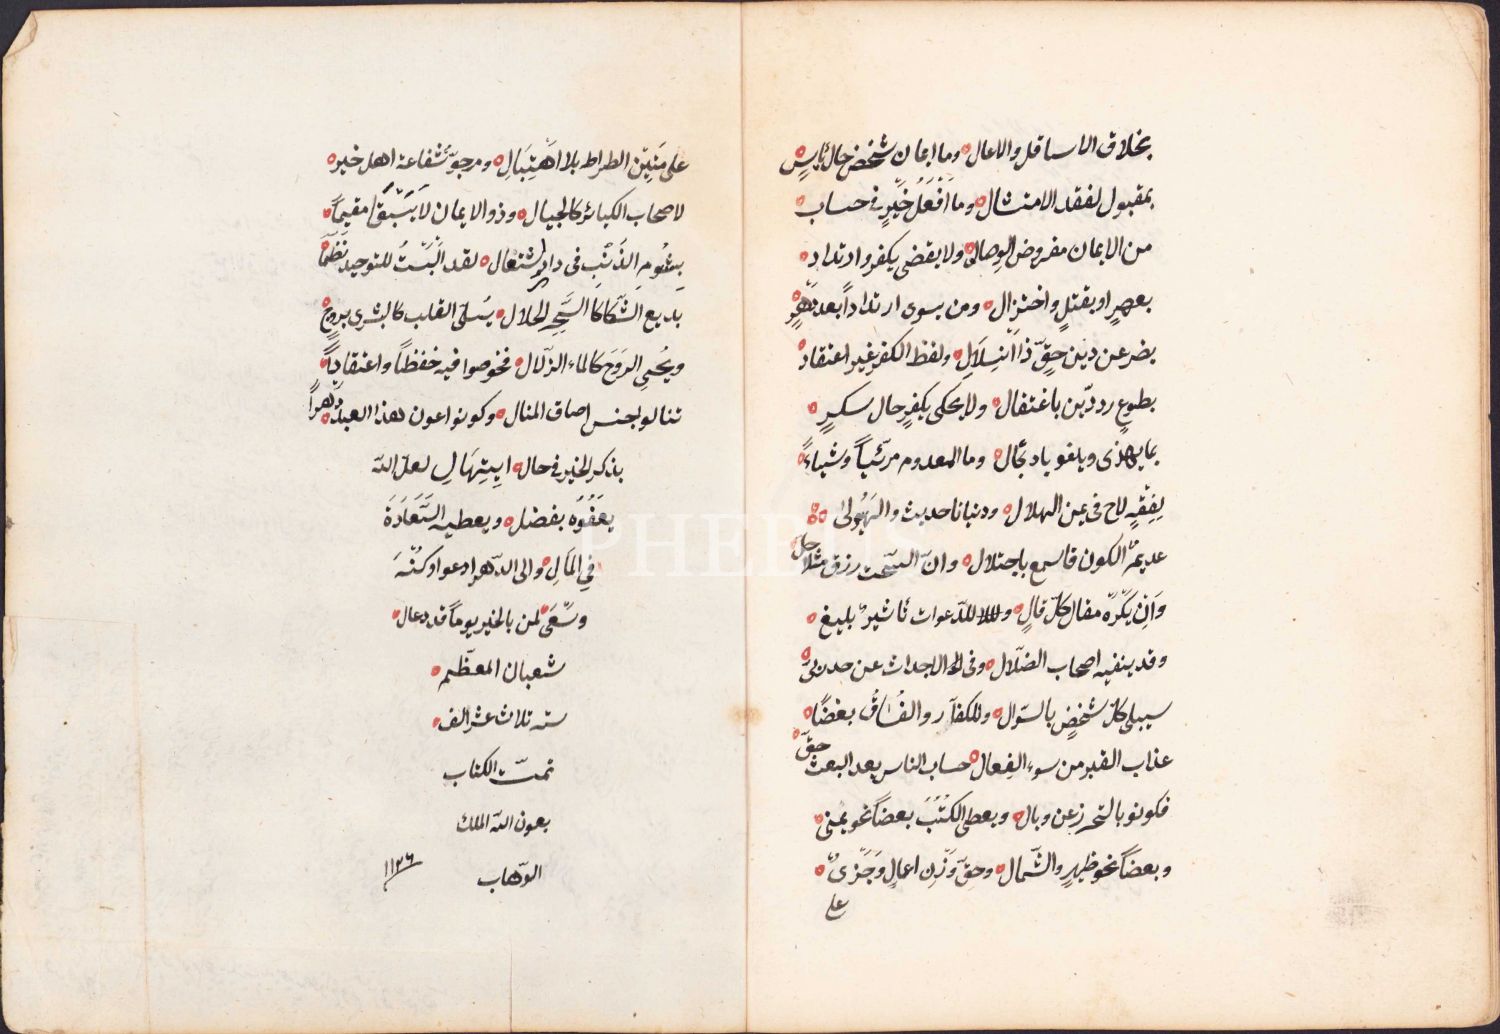 بخلاق الاسافل والاعال وما ايمان شخص حال يأس
بمقبول لفقد الامتثال وما افعل خير في حساب
من الايمان مفروض الوصال ولا يقضى بكفر وارتداد
بعهر او بقتل واختزال ومن ينوى ارتدادا بعد دهر
يضر عن دين حق ذا انسلال ولفظ الكفر غير اعتقاد
بطوع رد دين باغتفال ولا يحكى بكفر حال سكر
بما يهذى ويلغو بارتجال وما المعدوم مرئيا وشيأ
لفقه لاح في عين الهلال ودنيانا حديث والهيولى
عديم الكون فاسمع باجتلال وان السحت رزق مثل حل
وان يكره مقال كل قال وللدعوات تأثير بليغ
وقد ينفيه اصحاب الضلال وفي الاجداث عن حد ربى
سيبلى كل شخص بالسوال وللكفار والفساق بغضا
عذاب القبر من سوء الفعال حساب الناس بعد البعث حق
فكونو بالتحرز عن وبال ويعطى الكتب بعضا نحو يمنى
وبعضا نحو ظهر والشمال وحق وزن اعمال وجرى
على
على متين الطراط بلا اهتبال ومرجو شفاعة اهل خير
لاصحاب الكبائر كالجبال وذو الايمان لا يبقى مقيما
بشوم الذنب في دار اشتعال لقد البست للتوحيد نظما
بديع الشكل كالسحر الحلال يسلى القلب كالبشرى بروح
ويحيى الروح كالماء الزلال فخوضوا فيه حفظا واعتقادا
تنالو لجنس اصاق المنال وكونو اعون هذا العبد دهرا
بذكر الخير في حال ابتهال لعل الله
يعفوه بفضل ويعطيه السعادة
في المال والى الدهر ادعوا وكنه
وسعى لمن بالخير يوما قد دعال
شعبان المعظم
سنه ثلاث عشر الف
تمت الكتاب
بعون الله الملك
الوهاب
١١٢٦
PHEBUS